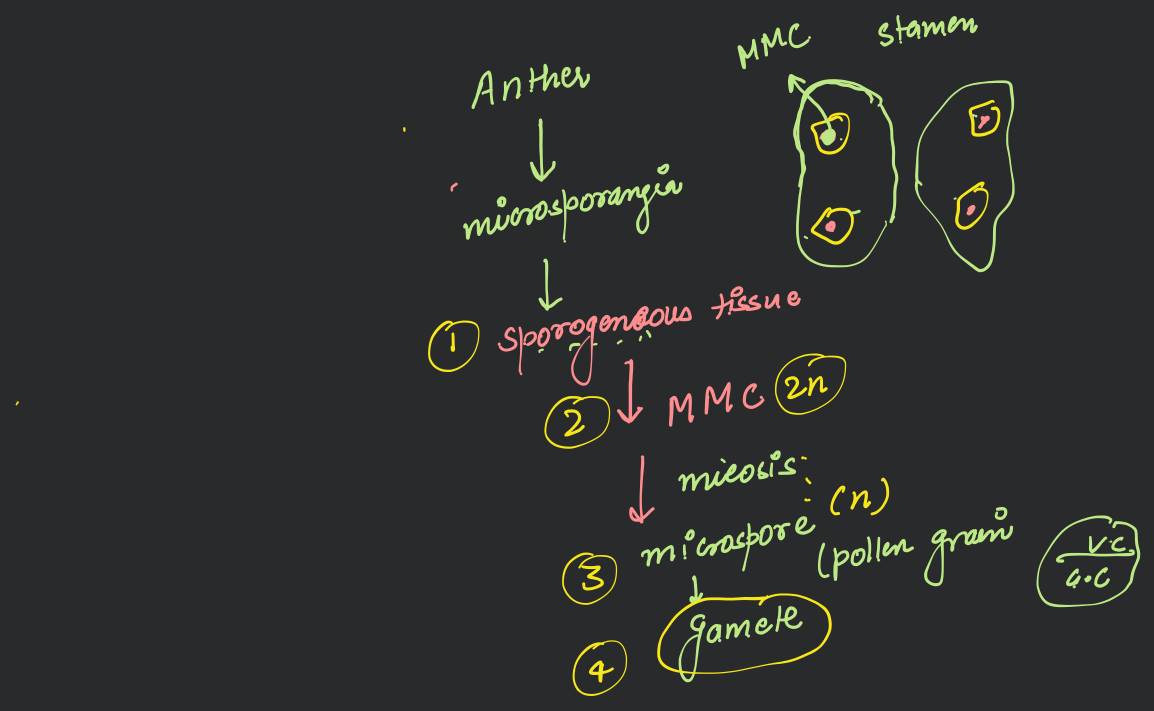 MMC stamen
Anther
microsporangia
1 sporogeneous tissue
2 MMC 2n
mieosis
(n)
3 microspore (pollen grain
V.C
G.C
gamete
4